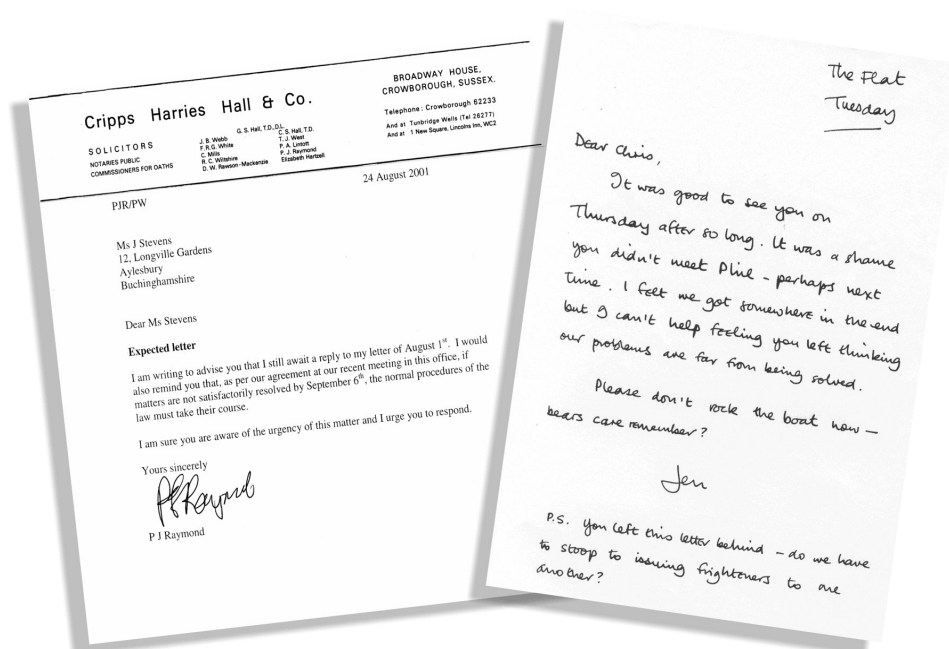 Cripps Harries Hall & Co.
SOLICITORS
NOTARIES PUBLIC
COMMISSIONERS FOR OATHS
G. S. Hall, T.D., D.L.
J. B. Webb
F.R.G. White
C. Mills
R. C. Wiltshire
D. W. Rawson-Mackenzie
C. S. Hall, T.D.
T. J. West
P. A. Lintott
P. J. Raymond
Elizabeth Hartzell
BROADWAY HOUSE,
CROWBOROUGH, SUSSEX.
Telephone: Crowborough 62233
And at Tunbridge Wells (Tel 26277)
And at 1 New Square, Lincolns Inn, WC2
24 August 2001
PJR/PW
Ms J Stevens
12, Longville Gardens
Aylesbury
Buchinghamshire
Dear Ms Stevens
Expected letter
I am writing to advise you that I still await a reply to my letter of August 1st. I would
also remind you that, as per our agreement at our recent meeting in this office, if
matters are not satisfactorily resolved by September 6th, the normal procedures of the
law must take their course.
I am sure you are aware of the urgency of this matter and I urge you to respond.
Yours sincerely
PJRaymond
P J Raymond
The Flat
Tuesday
Dear Chris,
It was good to see you on
Thursday after so long. It was a shame
you didn't meet Phil - perhaps next
time. I felt we got somewhere in the end
but I can't help feeling you left thinking
our problems are far from being solved.
Please don't rock the boat now -
bears care remember?
Jen
P.S. You left this letter behind - do we have
to stoop to issuing frighteners to one
another?